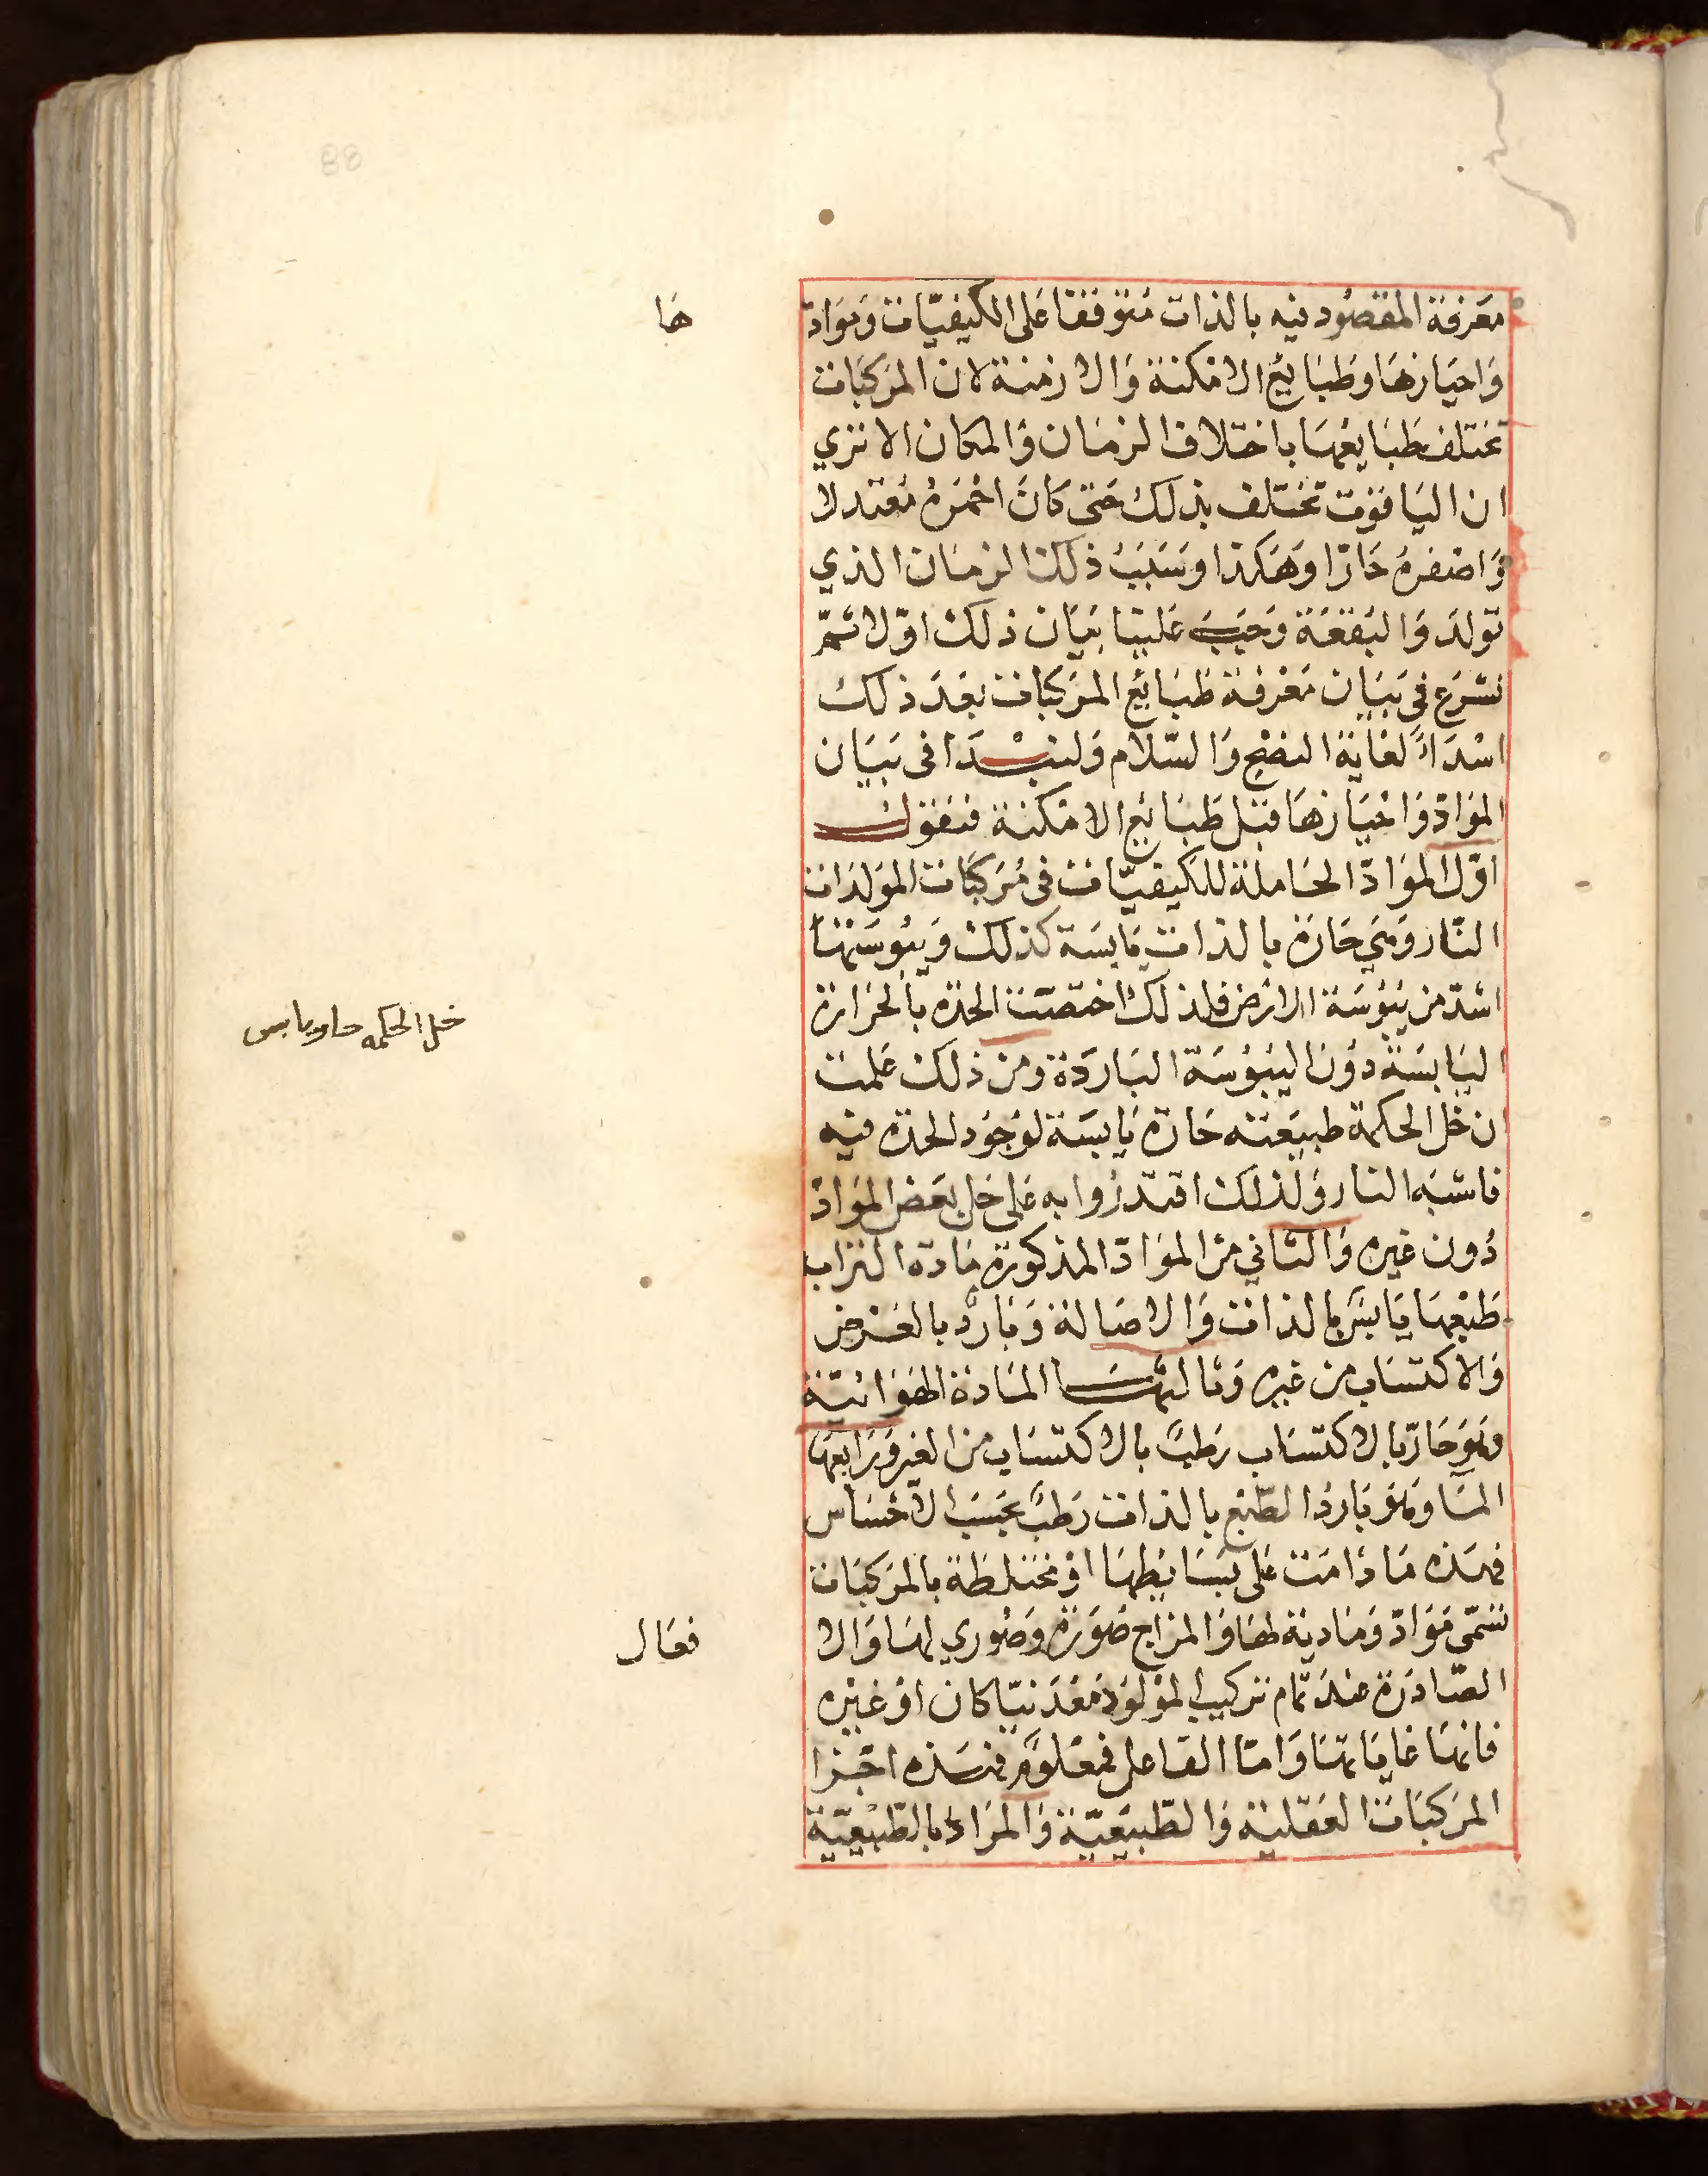 معرفة المقصود فيه بالذات متوقفا على الكيفيّات وموادّ
ها
واحيازها وطبايع الامكنة والازمنة لان المركبات
تختلف طبايعها باختلاف الزمان والمكان الا تري
ان الياقوت تختلف بذلك حتى كان احمره معتدلا
واصفره حارّا وهكذا وسبب ذلك الزمان الذي
تولد والبقعة وجب علينا بيان ذلك اوّلا ثمّ
نشرع في بيان معرفة طبايع المركبات بعد ذلك
اسداءً لغاية النضج والسّلام ولنبدا في بيان
الموادّ واحيازها قبل طبايع الامكنة فنقول
اوّل الموادّ الحاملة للكيفيّات في مركبات المولدات
النّار وهي حارة بالذات يابسة كذلك ويبوستها
اشدّ من يبوسة الارض فلذلك اختصّت الحدة بالحرارة
خل الحكمه حار يابس
اليابسة دون اليبوسة الباردة ومن ذلك علمت
ان خل الحكمة طبيعته حارة يابسة لوجود الحدة فيه
فاشبه النار ولذلك اقتدروا به على حل بعض الموادّ
دون غيره والثاني من الموادّ المذكورة مادة التراب
طبعها يابس بالذات والاصالة وبارد بالعرض
والاكتساب من غيره وثالثها المادة الهوائيّة
وهو حارّ بالاكتساب رطب بالاكتساب من الغير ورابعها
الما وهو بارد الطّبع بالذات رطب بحسب الاحساس
فهذه ما دامت على بسايطها او مختلطة بالمركبات
تسمّى موادّ ومادية لها والمزاج صورة وصوري لها والا
فعال
الصّادرة عند تمام تركيب المولود معدنيّا كان او غيره
فانها غاياتها وامّا الفاعل فمعلوم فهذه اجزا
المركبات العقلية والطّبيعيّة والمراد بالطّبيعيّة